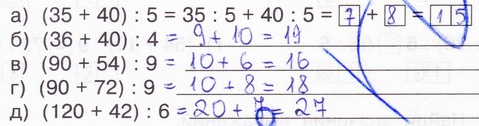 а) (35 + 40) : 5 = 35 : 5 + 40 : 5 = 7 + 8 = 15
б) (36 + 40) : 4 = 9 + 10 = 19
в) (90 + 54) : 9 = 10 + 6 = 16
г) (90 + 72) : 9 = 10 + 8 = 18
д) (120 + 42) : 6 = 20 + 7 = 27